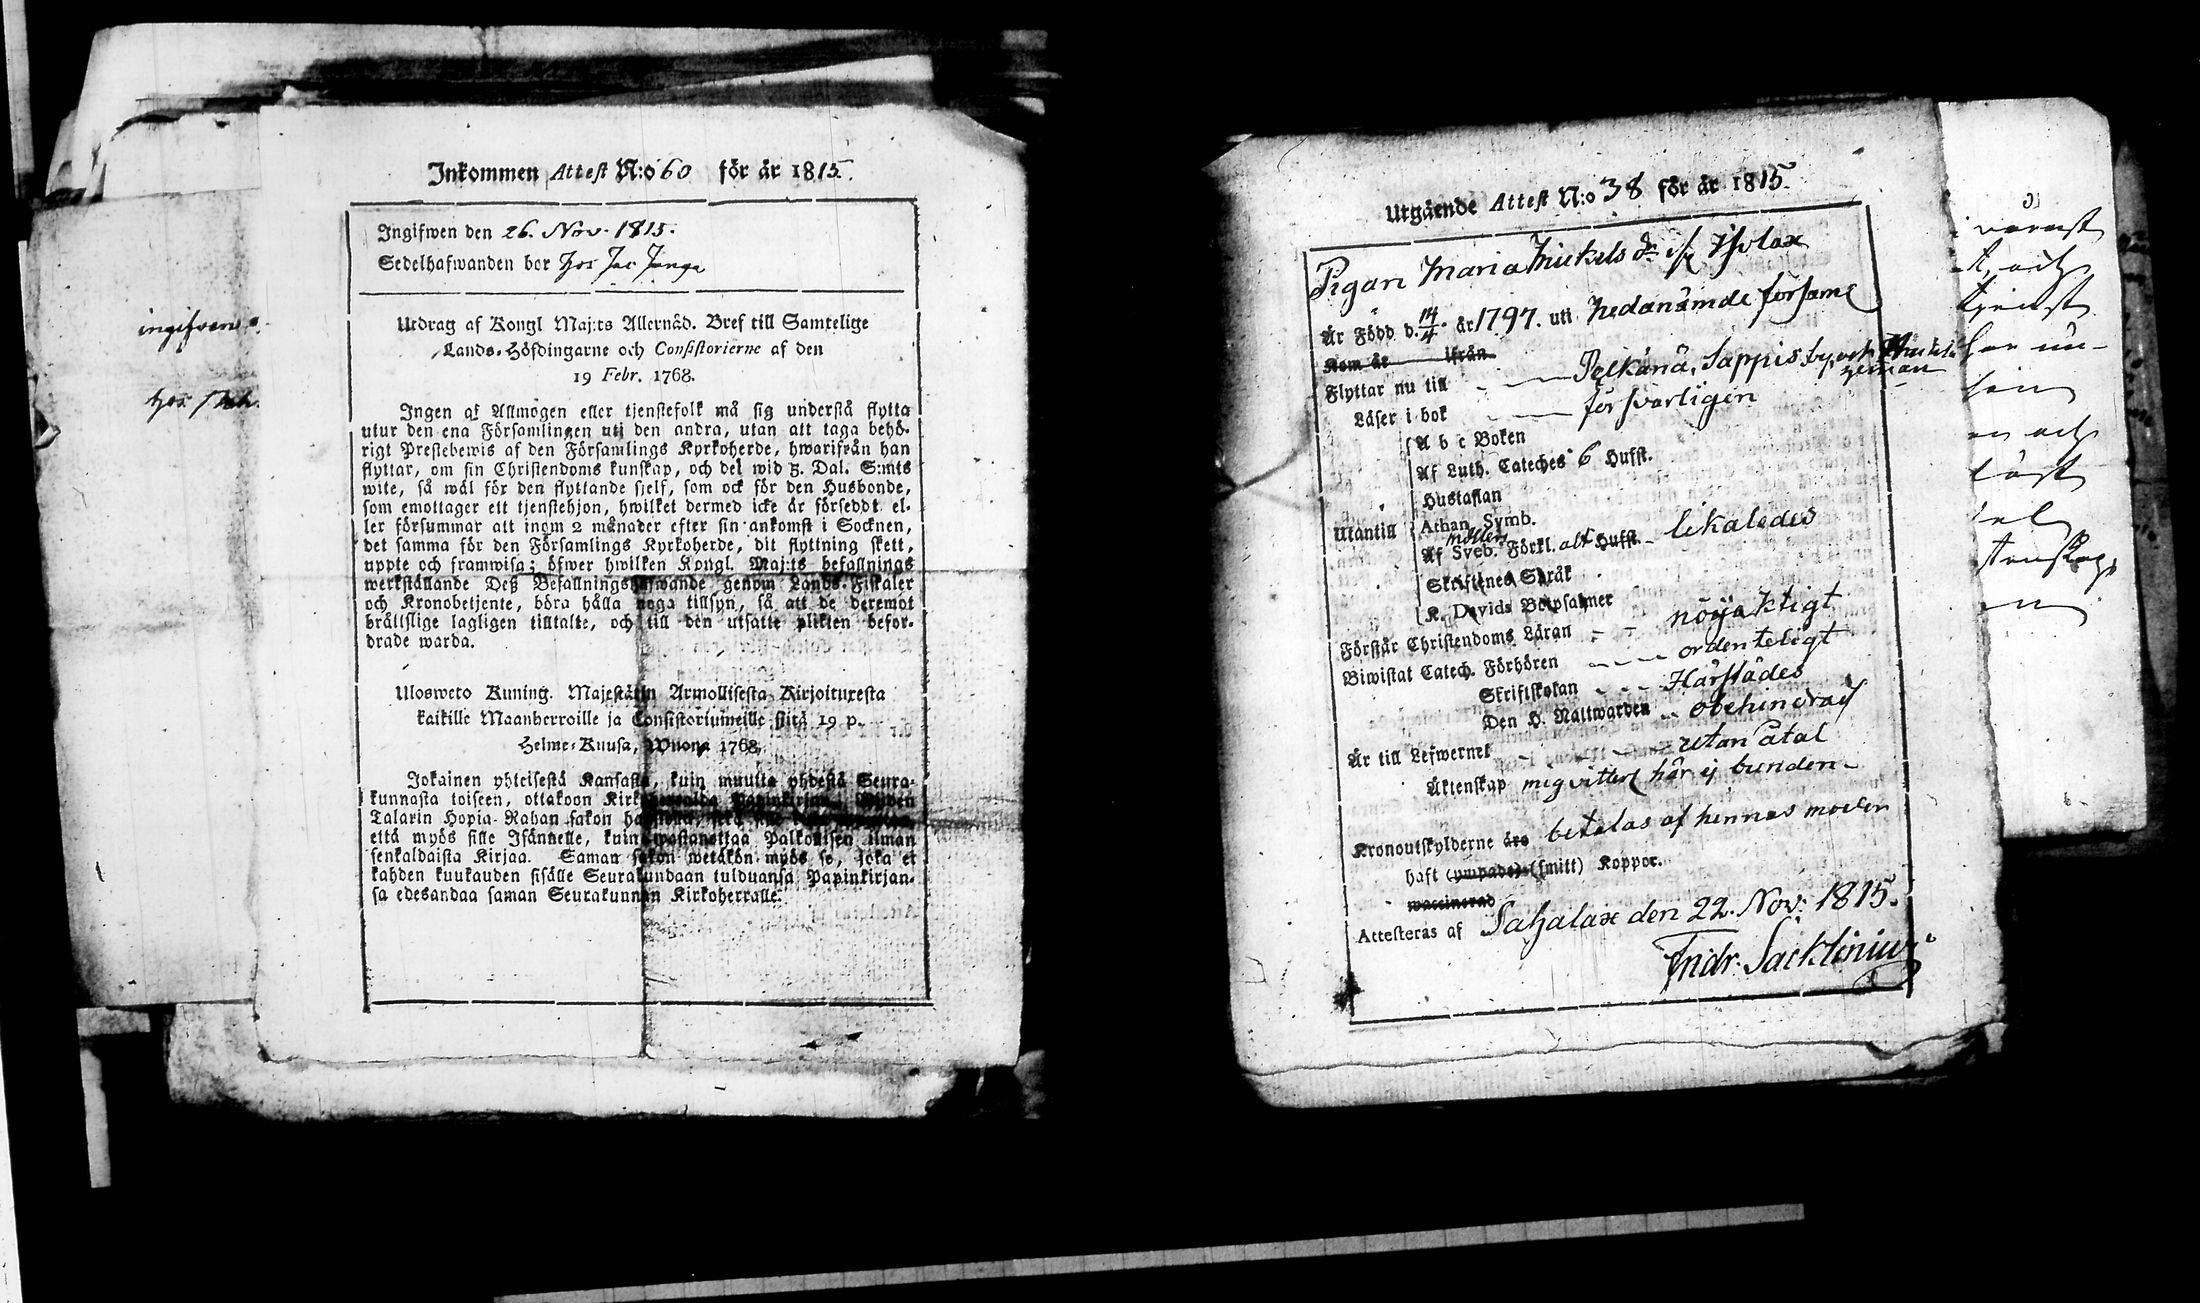 Inkommen Attest N:o 60 för år 1815.
Ingifwen den 26. Nov. 1815.
Sedelhafwanden bor hos Jac
Utdrag af Kongl Maj:ts Allernåd. Bref till Samtelige
Lands-Höfdingarne och Consistorierne af den
19 Febr. 1768.
Ingen af Allmogen eller tjenstefolk må sig understå flytta
utur den ena Församlingen uti den andra, utan att taga behö-
rigt Prestebewis af den Församlings Kyrkoherde, hwarifrån han
flyttar, om sin Christendoms kunskap, och det wid 3. Dal. S:mts
wite, så wäl för den flyttande sjelf, som ock för den Husbonde,
som emottager ett tjenstehjon, hwilket dermed icke är förseddt el-
ler försummar att inom 2 månader efter sin ankomst i Socknen,
det samma för den Församlings Kyrkoherde, dit flyttning skett,
uppte och framwisa; öfwer hwilken Kongl. Maj:ts befallnings
werkställande Deß Befallningshafwande genom Lands-Fiskaler
och Kronobetjente, böra hålla noga tillsyn, så att de deremot
brättslige lagligen tilltalte, och till den utsatte plikten befor-
drade warda.
Uloswetо Kuning. Majestätin Armollisesta Kirjoituxesta
kaikille Maanherroille ja Consistoriumeille siitä 19 p.
Helme-Kuusa, Wuona 1768.
Jokainen yhteisestä Kansasta, kuin muutta yhdestä Seura-
kunnasta toiseen, ottakoon
Talarin Hopia-Rahan sakon
että myös sille Isännelle, kuin wastanottaa Palkollisen ilman
senkaldaista Kirjaa. Saman sakon wetäkön myös se, joka ei
kahden kuukauden sisälle Seurakundaan tulduansa Papinkirjan-
sa edesandaa saman Seurakunnan Kirkoherralle.
ingifwen
hos
Utgående Attest N:o 38 för år 1815.
Pigan Maria Mickels dr
Är Född d. 14/4 år 1797. uti nedanämde församl
Kom åt ifrån
Flyttar nu till Pelkänä, Sappis by och
Läser i bok försvarligen
A b c Boken
Af Luth. Cateches 6 Hufst.
Hustaflan
Utantill Athan. Symb.
Af Sveb. Förkl. alt Hufst. likaledes
Skriftenes Språk
K. Davids Botpsalmer
Förstår Christendoms Läran nöyaktigt
Biwistat Catech. Förhören ordenteligt
Skriftskolan Härstädes
Den H. Nattwarden obehindrad
Är till Lefwernet utan åtal
Äktenskap mig vitterl här ej bunden
Kronoutskylderne äro betalas af hennes moder
haft (ympade) (smitt) Koppor.
waccinerad
Attesteras af Sahalax den 22. Nov: 1815.
Fridr. Sacklinius
varast
t, och
tjenst
har un-
sin
en och
läst